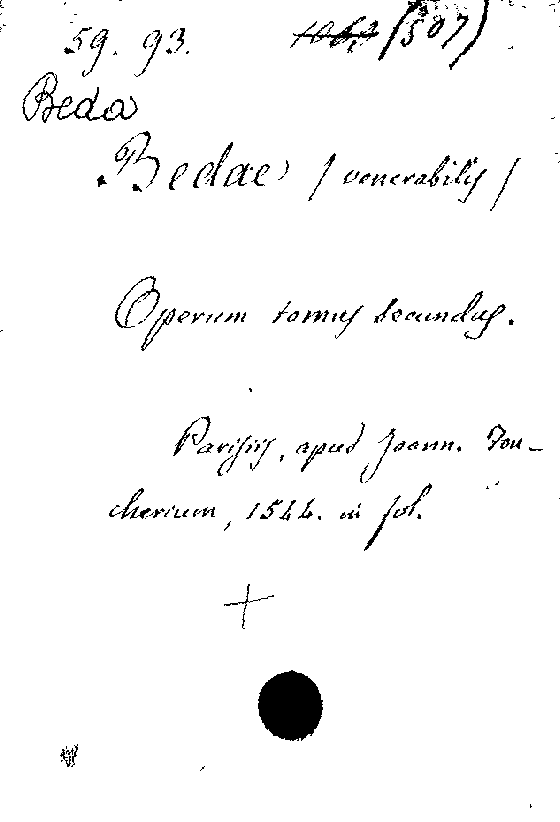 59. 93. (507)
Beda
Bedae / venerabilis /
Operum tomus secundus.
Parisiis, apud Joann. Fou-
cherium, 1544. in fol.